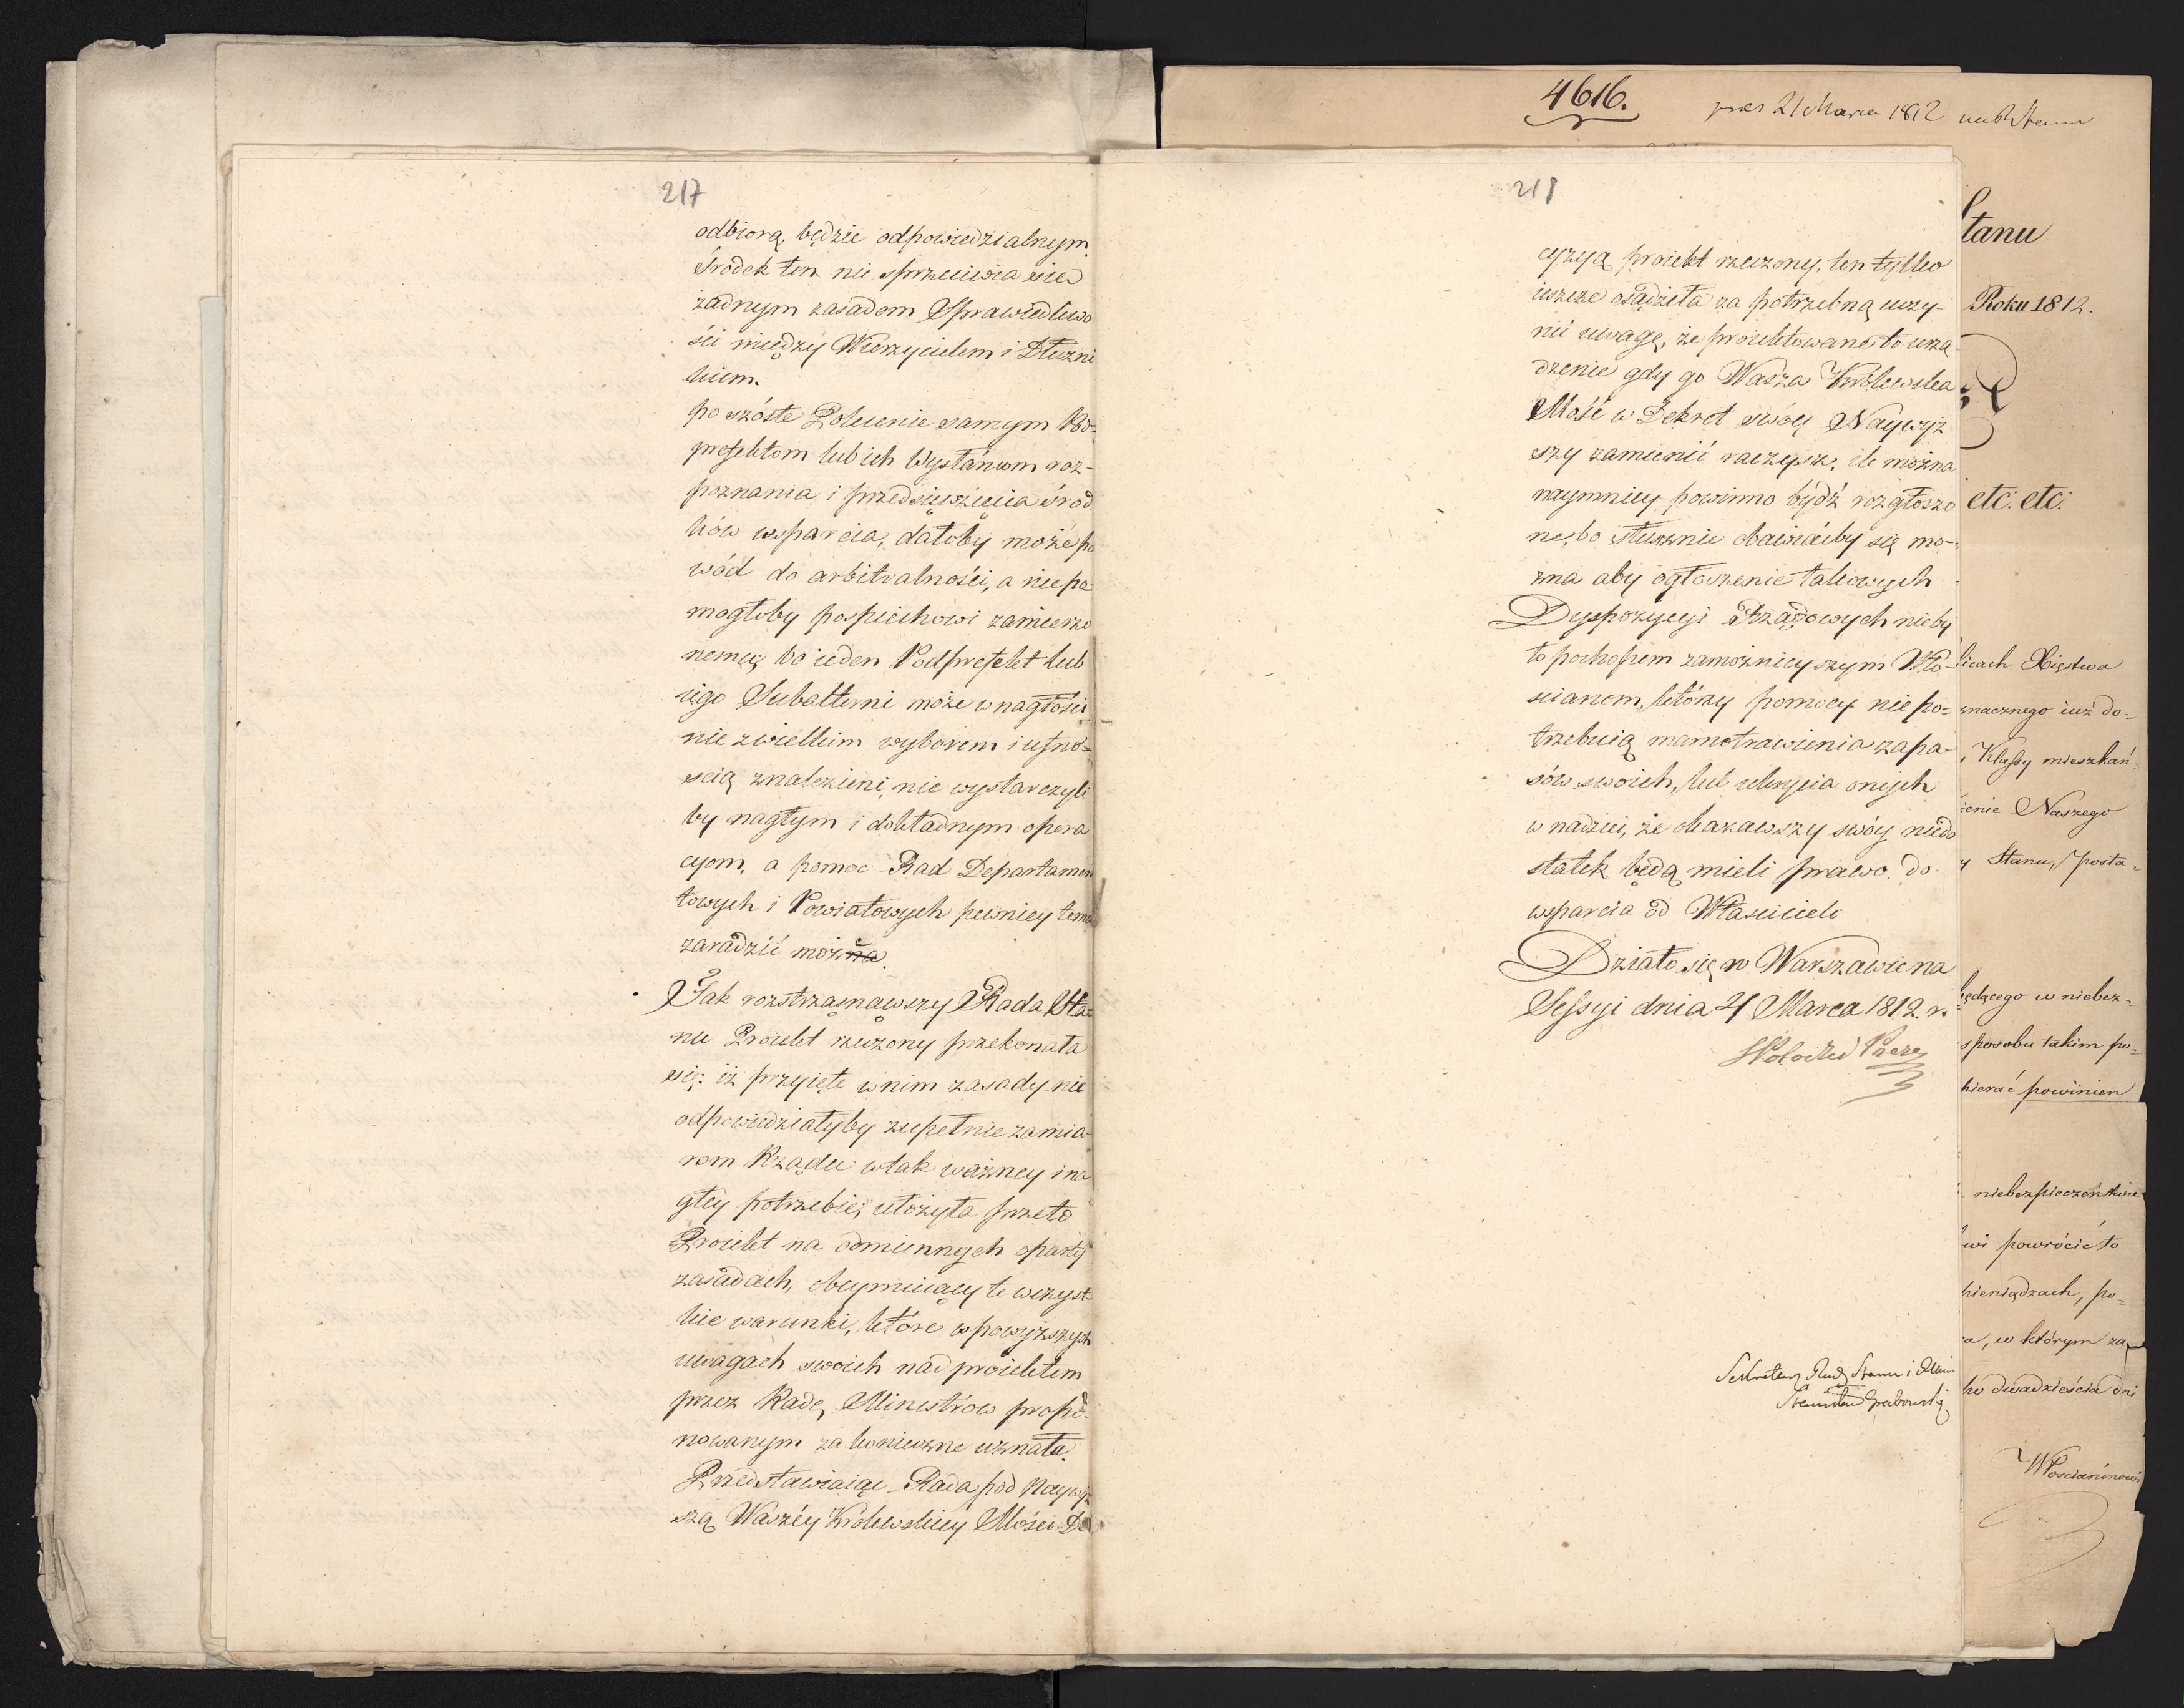 217
odbiorą, będzie odpowiedzialnym.
Środek ten nie sprzeciwia się
żadnym zasadom Sprawiedliwo
ści między Wierzycielem i Dłużni
kiem.
po szóste Polecenie samym Pod=
prefektom lub ich Wysłańcom roz-
poznania i przedsięwzięcia środ
ków wsparcia, dałoby może po
wód do arbitralności, a nie po=
mogłoby pospiechowi zamierzo
nemu; bo ieden Podprefekt lub
iego Subalterni może w nagłości
nie z wielkim wyborem i ufno-
ścią znalezieni, nie wystarczyli
by nagłym i dokładnym opera
cyom, a pomoc Rad Departamen
towych i Powiatowych pewniey temu
zaradzić może.
Jak roztrząsnąwszy Rada Sta=
nu Proiekt rzeczony przekonała
się: iż przyięte w nim zasady nie
odpowiedziałyby zupełnie zamia-
rom Rządu w tak ważney i na
głey potrzebie; ułożyła przeto
Proiekt na odmiennych oparty
zasadach, obeymuiący te wszyst-
kie warunki, które w powyższych
uwagach swoich nad proiektem
przez Radę Ministrów propo-
nowanym za konieczne uznała.
Przedstawiaiąc Rada pod Naywyż
szą Waszéy Królewskiey Mości De
4616.
pres 21 Marca 1812
218
cyzyą proiekt rzeczony, ten tylko
ieszcze osądziła za potrzebną uczy-
nić uwagę, że proiektowane to urzą
dzenie gdy go Wasza Królewska
Mość w Dekret swóy Naywyż
szy zamienić raczysz, ile można
naymniey powinno bydź rozgłoszo
ne, bo słusznie obawiaćby się mo-
żna aby ogłoszenie takowych
Dyspozycyi Rządowych nieby
ło pochopem zamożnieyszym Wło-
ścianom, którzy pomocy nie po=
trzebuią marnotrawienia zapa-
sów swoich, lub ukrycia onych
w nadziei, że okazawszy swóy niedo
statek będą mieli prawo do
wsparcia od Właścicieli
Działo się w Warszawie na
Sessyi dnia 21 Marca 1812. r.
Sekretarz Rady Stanu i
Stanisław Grabowski
Stanu
Roku 1812.
etc: etc:
licach Xięstwa
znacznego iuż do=
Klassy mieszkań
enie Naszego
Stanu, posta-
będącego w niebez-
sposobu takim po=
bierać powinien
niebezpieczeństwie
wi powrócić to
pieniądzach, po=
a, w którym za
ko dwadzieścia dni
Włościaninowi